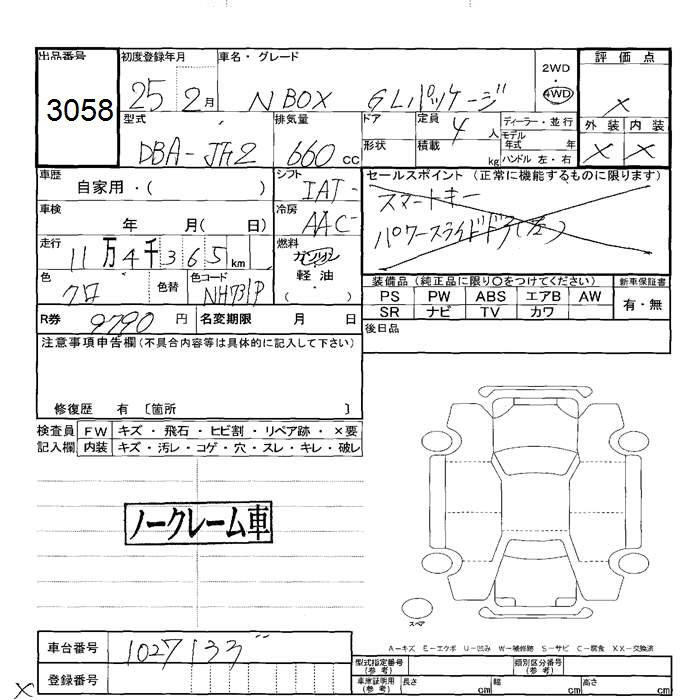 出品番号
3058
初度登録年月
25 2月
車名・グレード
N BOX GLパッケージ
2WD
4WD
評価点
×
外装 内装
× ×
型式
DBA-JF2
排気量
660 cc
ドア
形状
定員 4 人
積載 kg
ディーラー・並行
モデル年式 年
ハンドル 左・右
車歴
自家用・( )
シフト
IAT
セールスポイント (正常に機能するものに限ります)
スマートキー
パワースライドドア(左)
車検
年 月( 日)
冷房
AAC
走行
11万4千365 km
燃料
ガソリン
軽油
( )
色
クロ
色替
色コード
NH731P
装備品 (純正品に限り○をつけてください)
PS PW ABS エアB AW
SR ナビ TV カワ
新車保証書
有・無
R券 9790 円
名変期限 月 日
後日品
注意事項申告欄(不具合内容等は具体的に記入して下さい)
修復歴 有 〔箇所 〕
検査員記入欄
FW キズ・飛石・ヒビ割・リペア跡・×要
内装 キズ・汚レ・コゲ・穴・スレ・キレ・破レ
ノークレーム車
スペア
A-キズ E-エクボ U-凹み W-補修跡 S-サビ C-腐食 XX-交換済
車台番号
1027133
登録番号
型式指定番号(参考)
類別区分番号(参考)
車庫証明用(参考)
長さ cm 幅 cm 高さ cm
×